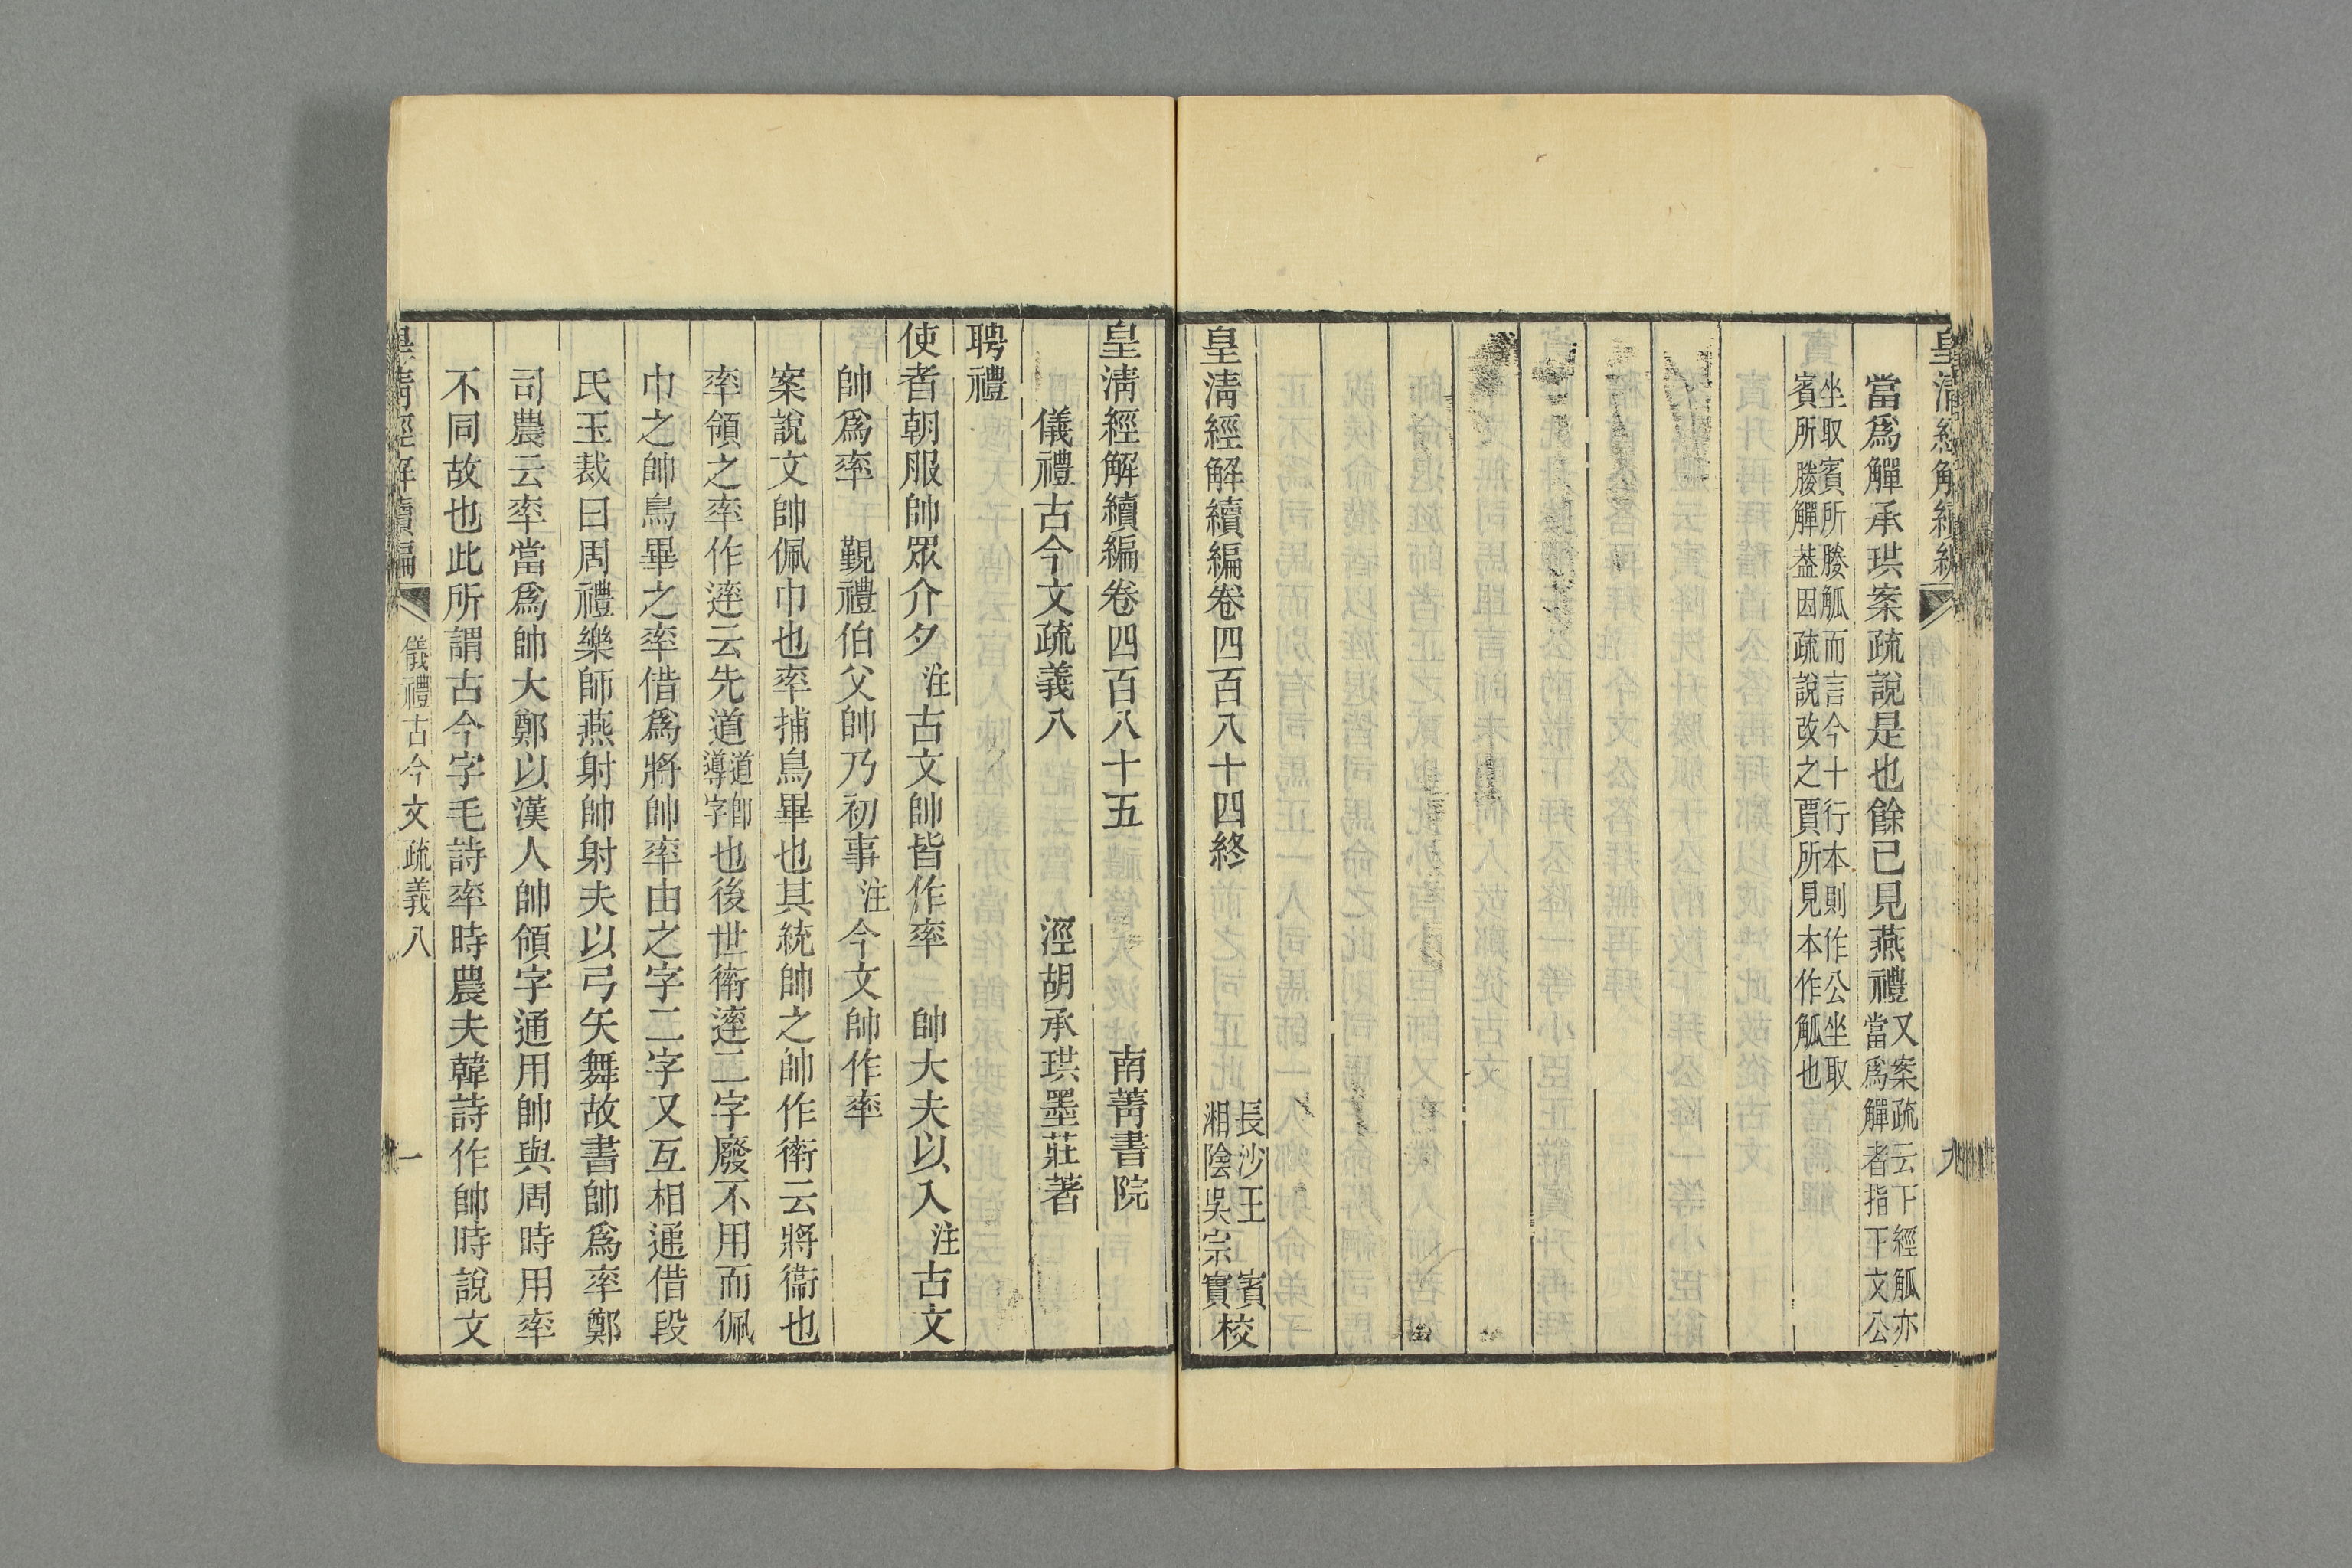 皇清經解續編
九
當爲觶承珙案疏說是也餘已見燕禮又案疏云下經觚亦
當爲觶者指下文公
坐取賓所媵觚而言今十行本則作公坐取
賓所媵觶蓋因疏說改之賈所見本作觚也
皇清經解續編卷四百八十四終
長沙王 賓
湘陰吳宗實校
皇清經解續編卷四百八十五 南菁書院
儀禮古今文疏義八 涇胡承珙墨莊著
聘禮
使者朝服帥眾介夕注古文帥皆作率 帥大夫以入注古文
帥爲率 覲禮伯父帥乃初事注今文帥作率
案說文帥佩巾也率捕鳥畢也其統帥之帥作衛云將衛也
率領之率作逹云先道道卽
導字也後世衛逹二字廢不用而佩
巾之帥鳥畢之率借爲將帥率由之字二字又互相通借段
氏玉裁曰周禮樂師燕射帥射夫以弓矢舞故書帥爲率鄭
司農云率當爲帥大鄭以漢人帥領字通用帥與周時用率
不同故也此所謂古今字毛詩率時農夫韓詩作帥時說文
皇清經解續編
儀禮古今文疏義八
一